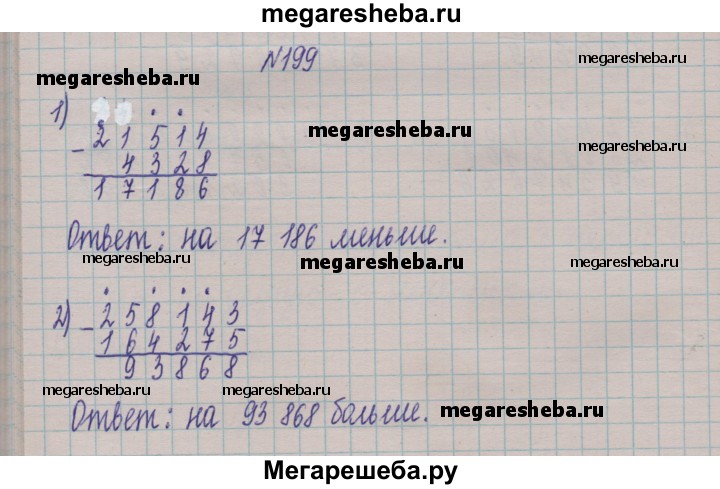 megaresheba.ru
№199
megaresheba.ru
megaresheba.ru
1)
- 21514
megaresheba.ru
4328
megaresheba.ru
17186
Ответ: на 17 186 меньше.
megaresheba.ru
megaresheba.ru
megaresheba.ru
2) - 258143
164275
93868
megaresheba.ru
megaresheba.ru
Ответ: на 93 868 больше.
megaresheba.ru
Мегарешеба.ру